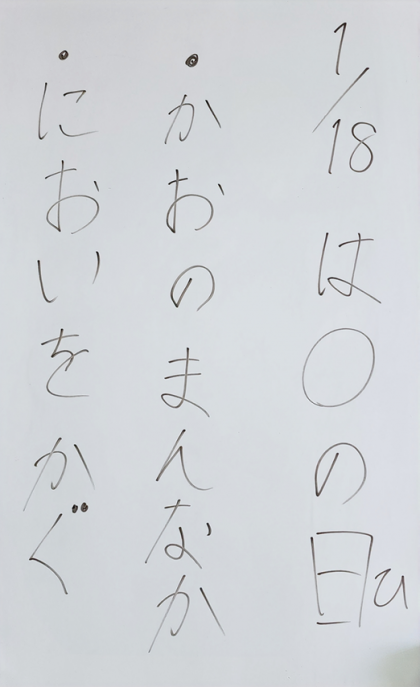 1/18は〇の日ひ
・かおのまんなか
・においをかぐ